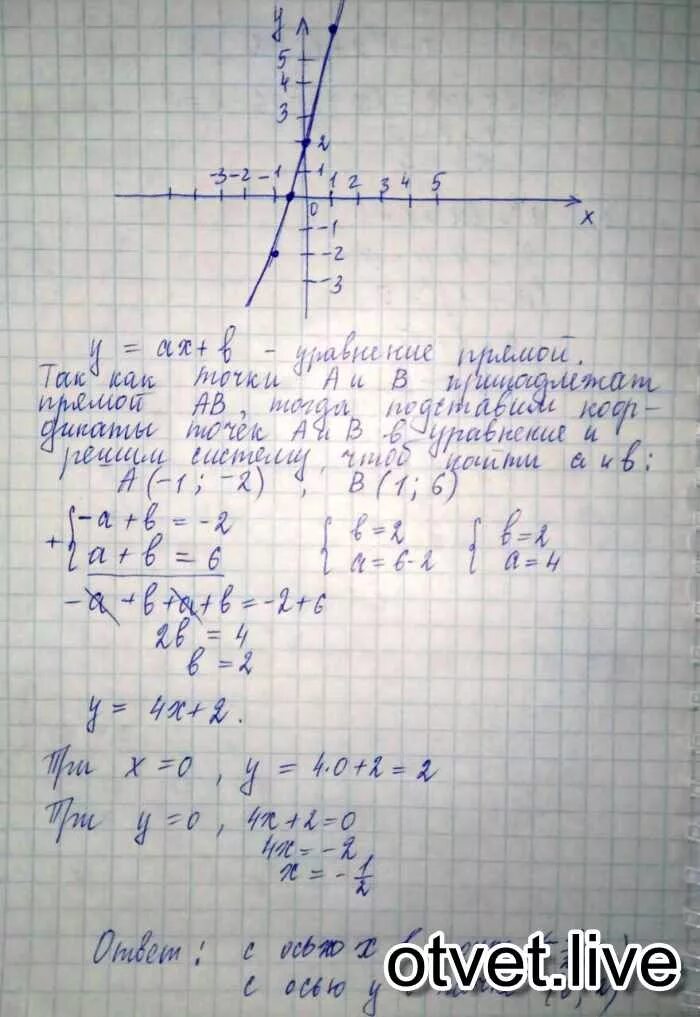 y
5
4
3
2
-3 -2 -1 1
0 1 2 3 4 5
x
-1
-2
-3
y = ax + b - уравнение прямой.
Так как точки А и В принадлежат
прямой АВ, тогда подставим коор-
динаты точек А и В в уравнение и
решим систему, чтоб найти а и в:
А (-1; -2) , В (1; 6)
+ { -a + b = -2 { b = 2 { b = 2
a + b = 6 a = 6-2 a = 4
-a + b + a + b = -2 + 6
2b = 4
b = 2
y = 4x + 2.
При x = 0 , y = 4·0 + 2 = 2
При y = 0 , 4x + 2 = 0
4x = -2
x = -1/2
Ответ: с осью x в
с осью y
otvet.live